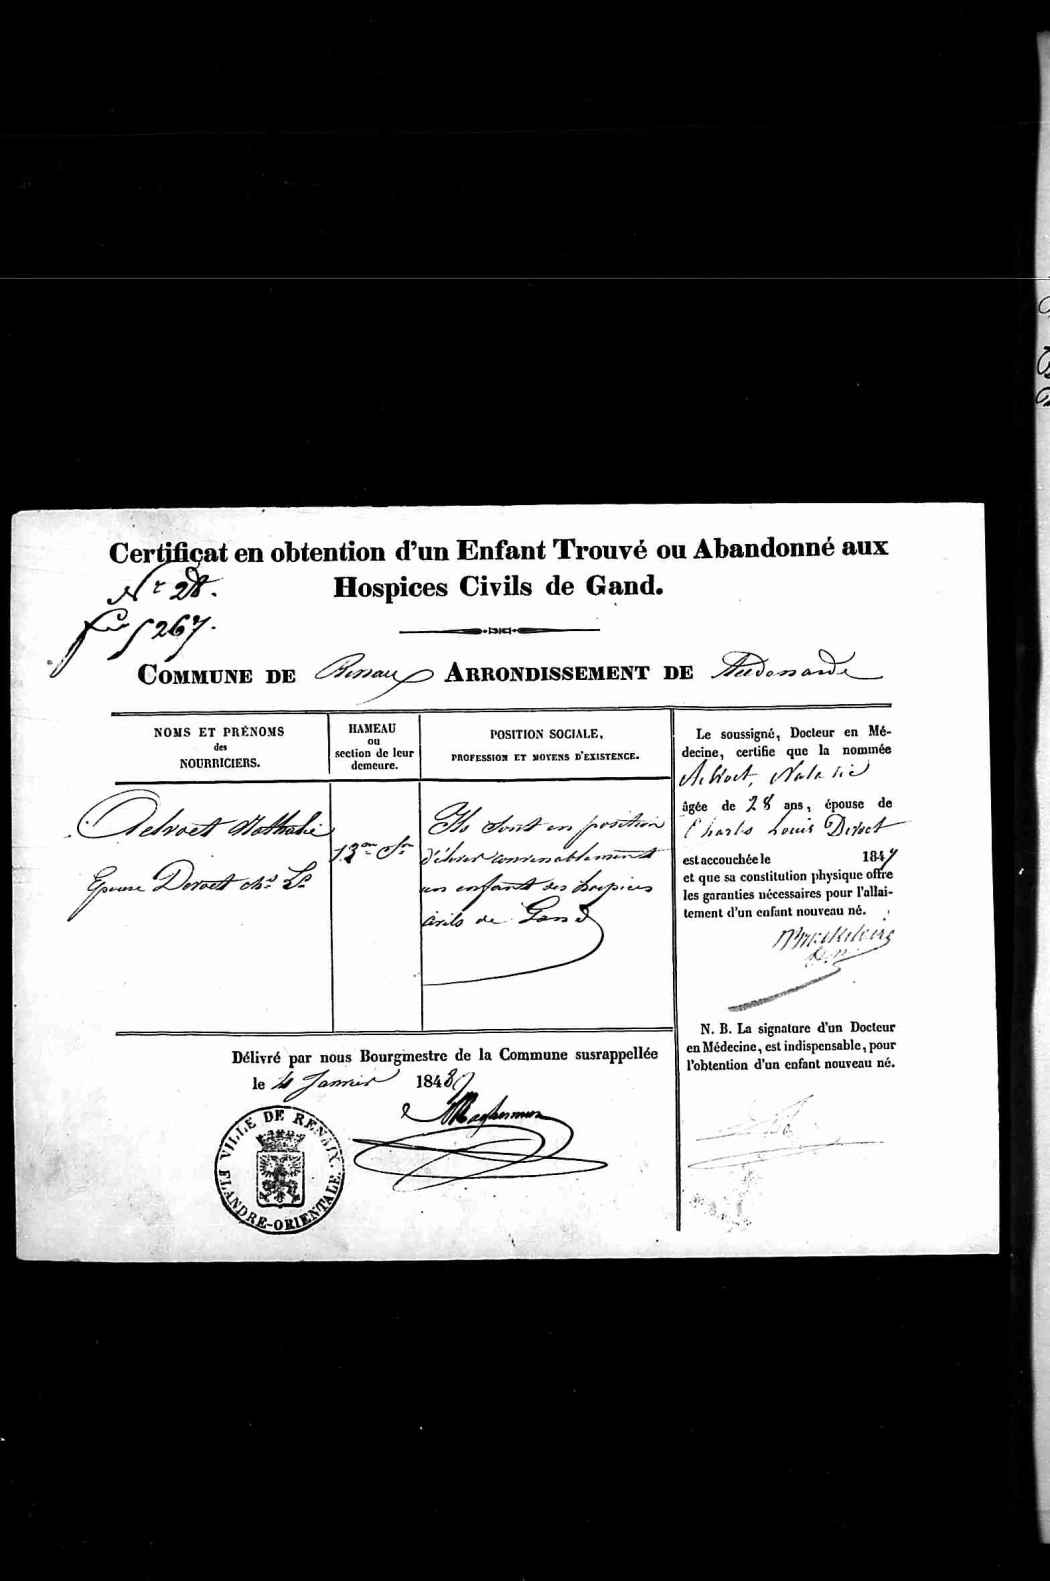 Certificat en obtention d'un Enfant Trouvé ou Abandonné aux
Hospices Civils de Gand.
Nr 28.
5267.
COMMUNE DE Renaix ARRONDISSEMENT DE Audenarde
NOMS ET PRÉNOMS
des
NOURRICIERS.
HAMEAU
ou
section de leur
demeure.
POSITION SOCIALE,
PROFESSION ET MOYENS D'EXISTENCE.
Delvoet Nathalie
Epouse Deroet chs Ls
13me Son
Ils sont en position
d'élever convenablement
un enfant des hospices
civils de Gand
Le soussigné, Docteur en Mé-
decine, certifie que la nommée
Nalalie
âgée de 28 ans, épouse de
Charles Louis Deroet
est accouchée le 1847
et que sa constitution physique offre
les garanties nécessaires pour l'allai-
tement d'un enfant nouveau né.
N. B. La signature d'un Docteur
en Médecine, est indispensable, pour
l'obtention d'un enfant nouveau né.
Délivré par nous Bourgmestre de la Commune susrappellée
le 4 Janvier 1848
VILLE DE RENAIX.
FLANDRE-ORIENTALE.